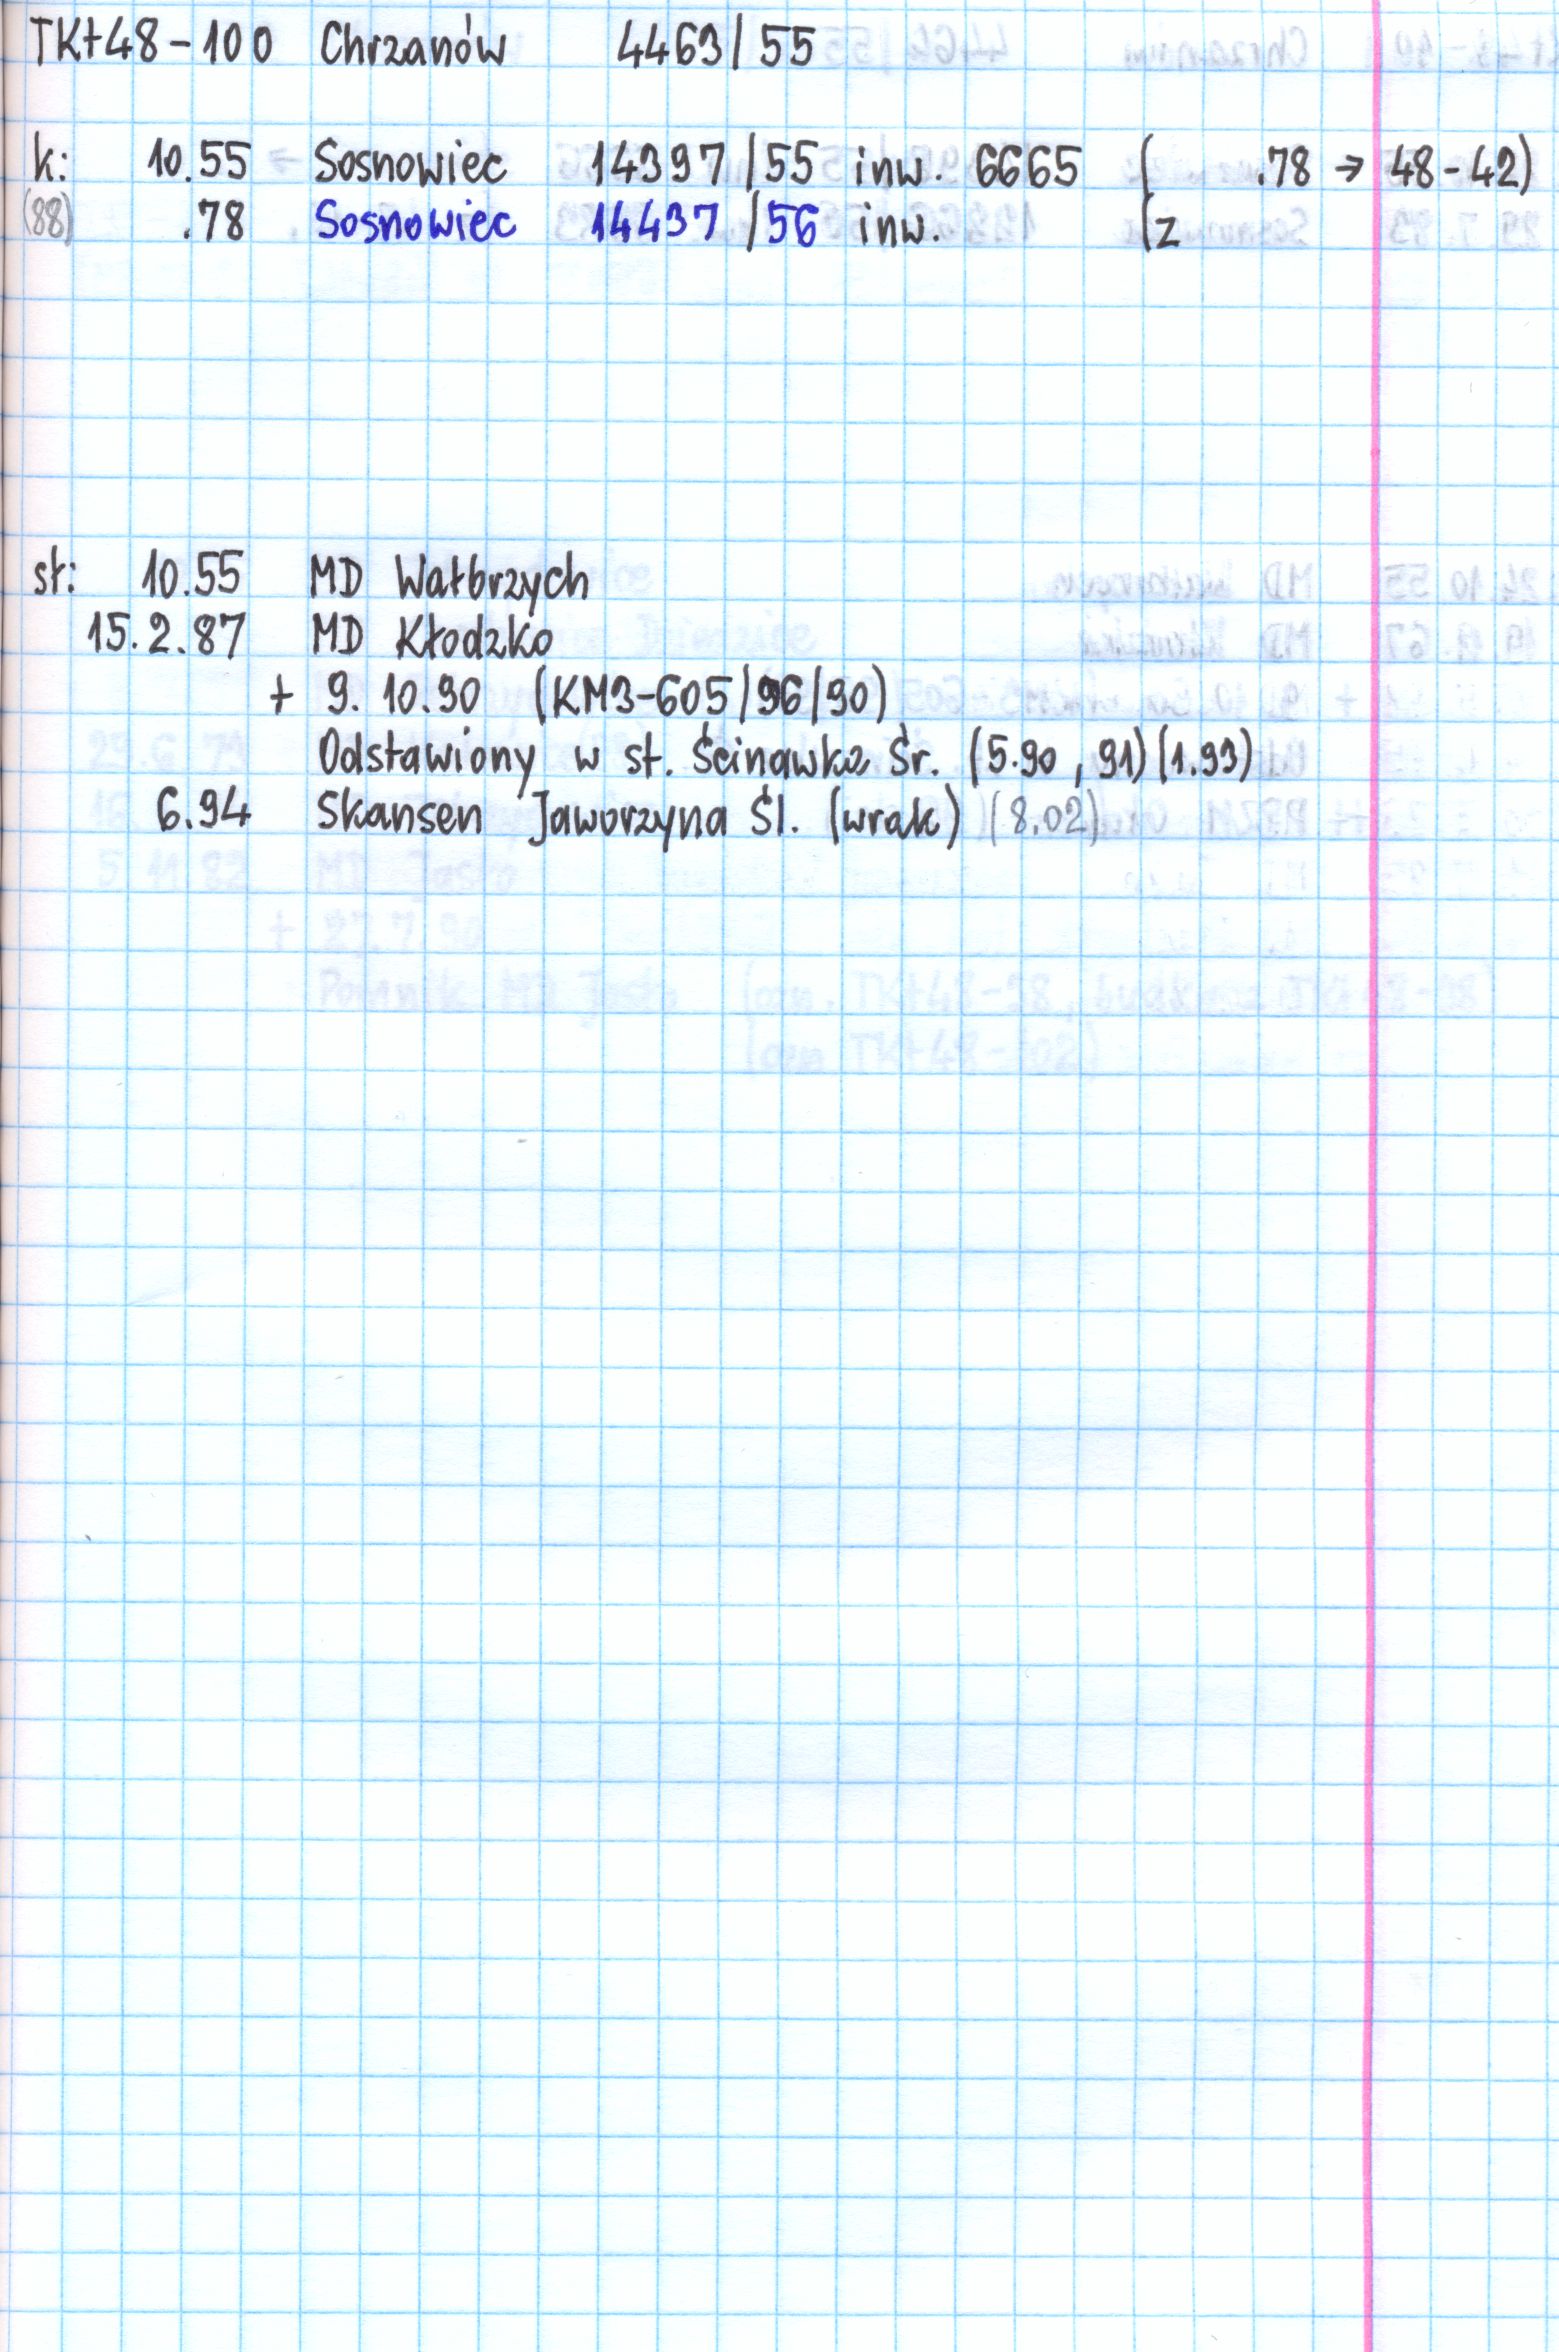 TKt48-100 Chrzanów 4463/55
k: 10.55 Sosnowiec 14397/55 inw. 6665 ( .78 → 48-42)
(88) .78 Sosnowiec 14437/56 inw. (z
st: 10.55 MD Wałbrzych
15.2.87 MD Kłodzko
+ 9.10.90 (KM3-605/96/90)
Odstawiony w st. Ścinawka Śr. (5.90, 91) (1.93)
6.94 Skansen Jaworzyna Śl. (wrak) (8.02)